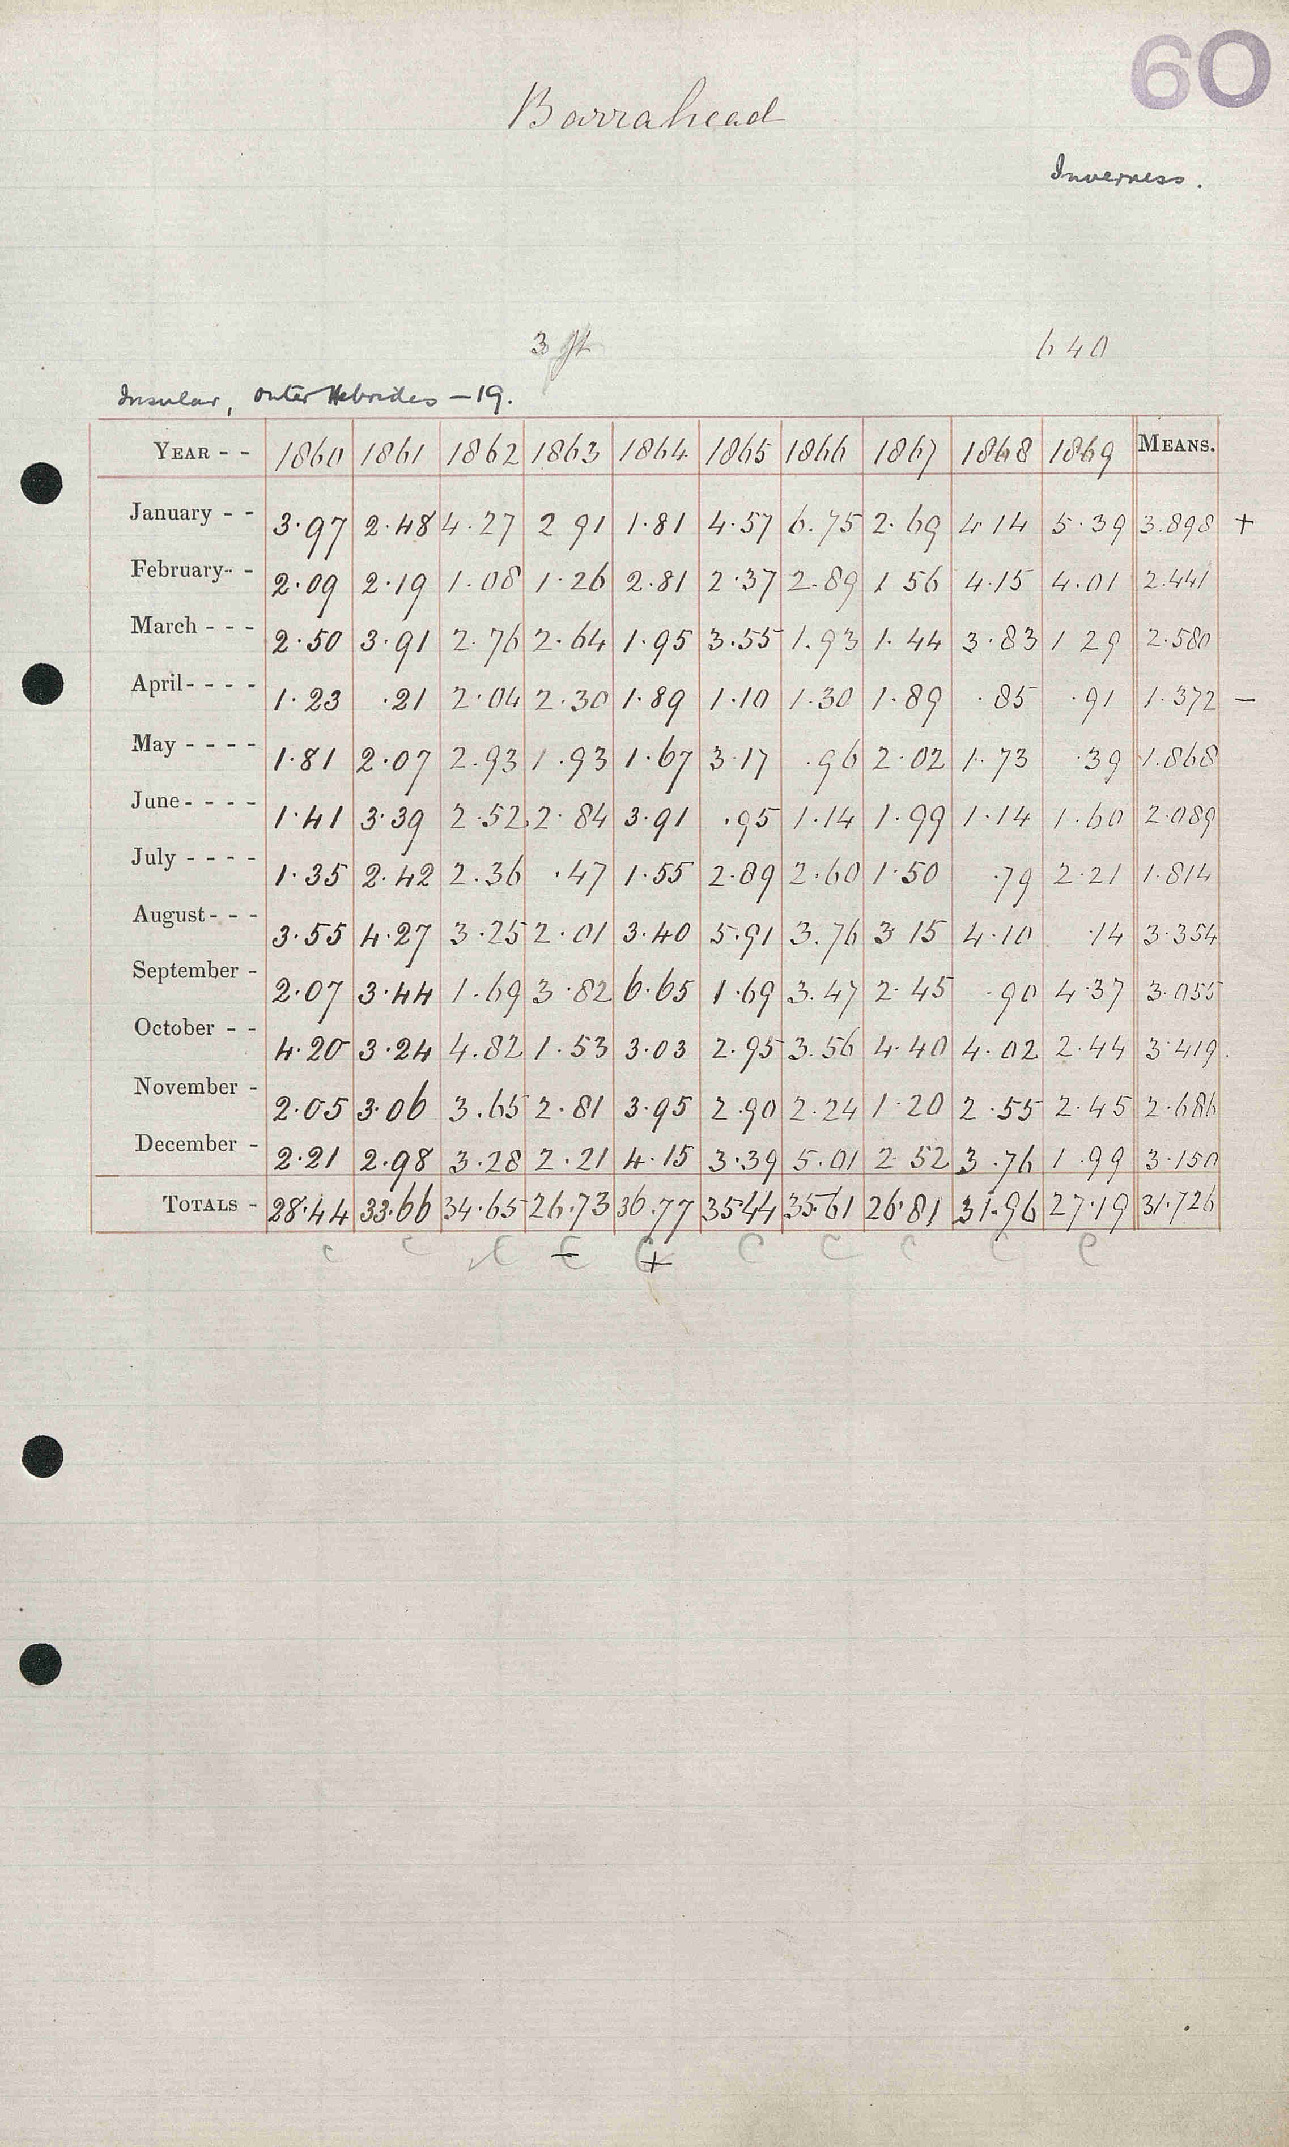 60
Barrahead
Inverness.
3 ft 640
Insular, Outer Hebrides - 19.
YEAR - - 1860 1861 1862 1863 1864 1865 1866 1867 1868 1869 MEANS.
January - - 3.97 2.48 4.27 2 91 1.81 4.57 6.75 2.69 4 14 5.39 3.898 +
February - - 2.09 2.19 1.08 1.26 2.81 2.37 2.89 1 56 4.15 4.01 2.441
March - - - 2.50 3.91 2.76 2.64 1.95 3.55 1.93 1.44 3.83 1 29 2.580
April - - - - 1.23 .21 2.04 2.30 1.89 1.10 1.30 1.89 .85 .91 1.372 -
May - - - - 1.81 2.07 2.93 1.93 1.67 3.17 .96 2.02 1.73 .39 1.868
June - - - - 1.41 3.39 2.52 2.84 3.91 .95 1.14 1.99 1.14 1.60 2.089
July - - - - 1.35 2.42 2.36 .47 1.55 2.89 2.60 1.50 .79 2.21 1.814
August - - - 3.55 4.27 3.25 2.01 3.40 5.91 3.76 3 15 4.10 .14 3.354
September - 2.07 3.44 1.69 3.82 6.65 1.69 3.47 2.45 .90 4.37 3.055
October - - 4.20 3.24 4.82 1.53 3.03 2.95 3.56 4.40 4.02 2.44 3.419
November - 2.05 3.06 3.65 2.81 3.95 2.90 2.24 1.20 2.55 2.45 2.686
December - 2.21 2.98 3.28 2.21 4.15 3.39 5.01 2 52 3.76 1.99 3.150
TOTALS - 28.44 33.66 34.65 26.73 36.77 35.44 35.61 26.81 31.96 27.19 31.726
c c c c - c + c c c c c